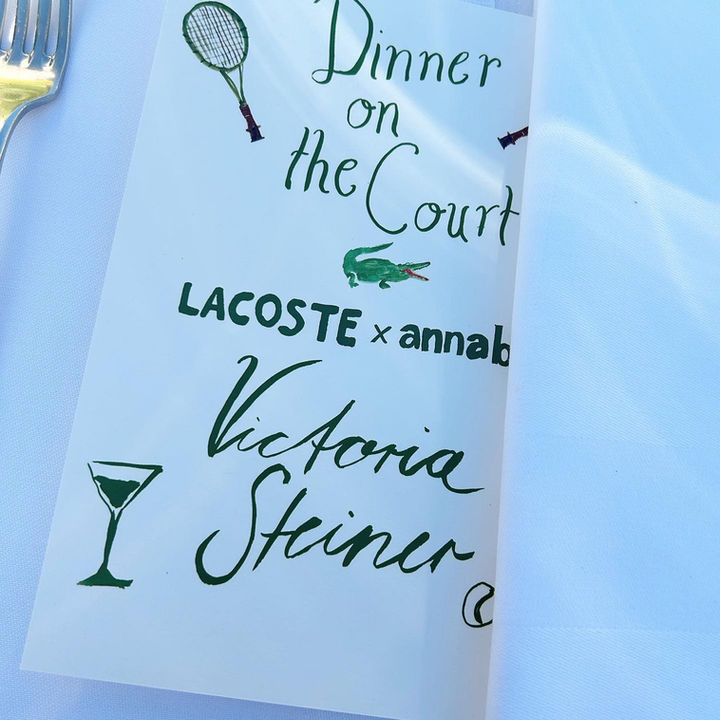 Dinner
on
the Court
LACOSTE x annab
Victoria
Steiner